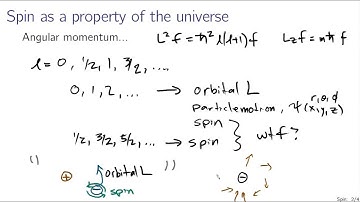 Spin as a property of the universe
Angular momentum... L²f = ħ²l(l+1)f L_z f = mħf
l = 0, 1/2, 1, 3/2, ...
0, 1, 2, ... → orbital L
particle motion, ψ(x,y,z) r,θ,ϕ
spin
1/2, 3/2, 5/2, ... → spin } wtf?
" orbital L "
+ ⊖ spin ⊖
Spin 2/6